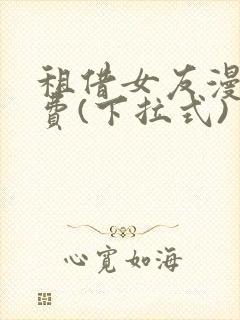 租借女友漫
费(下拉式)
心宽如海